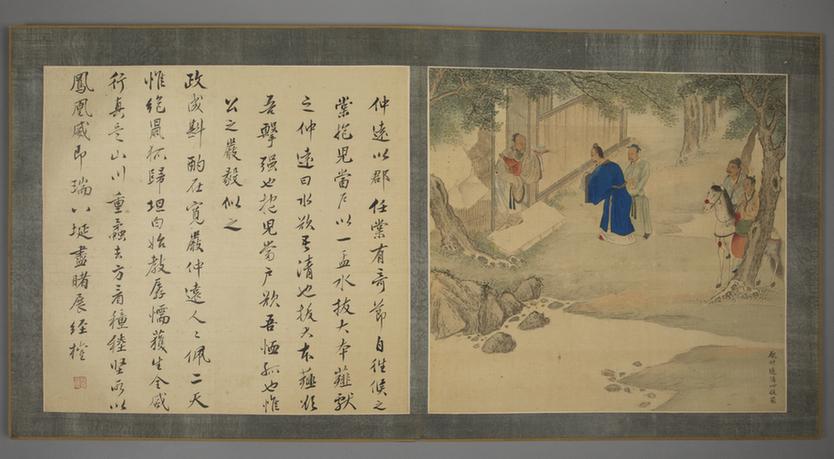 仲遠以郡任棠有奇節自往候之
棠抱兒當戶以一盂水拔大本薤獻
之仲遠曰水欲吾清也拔大本薤欲
吾擊强也抱兒當戶欲吾恤孤也惟
公之嚴毅似之
政成斟酌在寬嚴仲遠人々佩二天
惟絕歸坦白始教孱懦獲生全威
行真是山川重蠹去方看種稑堅所以
鳳凰咸即瑞八埏盡睹展經
仲遠清心